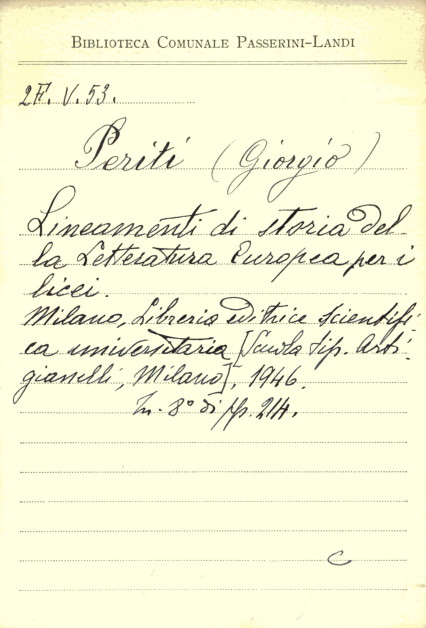 BIBLIOTECA COMUNALE PASSERINI-LANDI
2F. V. 53.
Periti (Giorgio)
Lineamenti di storia del-
la Letteratura Europea per i
licei.
Milano, Libreria editrice scientifi-
ca universitaria [Scuola Tip. Arti-
gianelli, Milano], 1946.
In-8° di pp. 214.
C